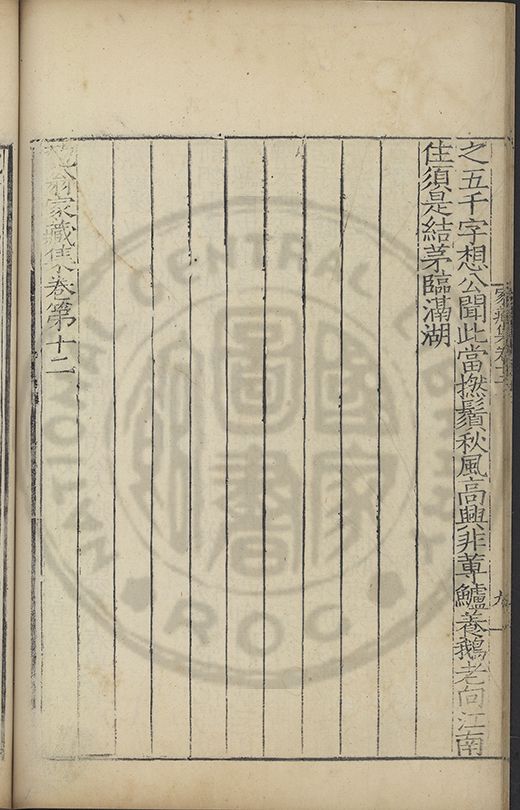 之五千字想公聞此當撚鬚秋風高興非蓴鱸養鵝老向江南
住須是結茅臨滿湖
翁家藏集卷第十二
家藏集卷十二
九